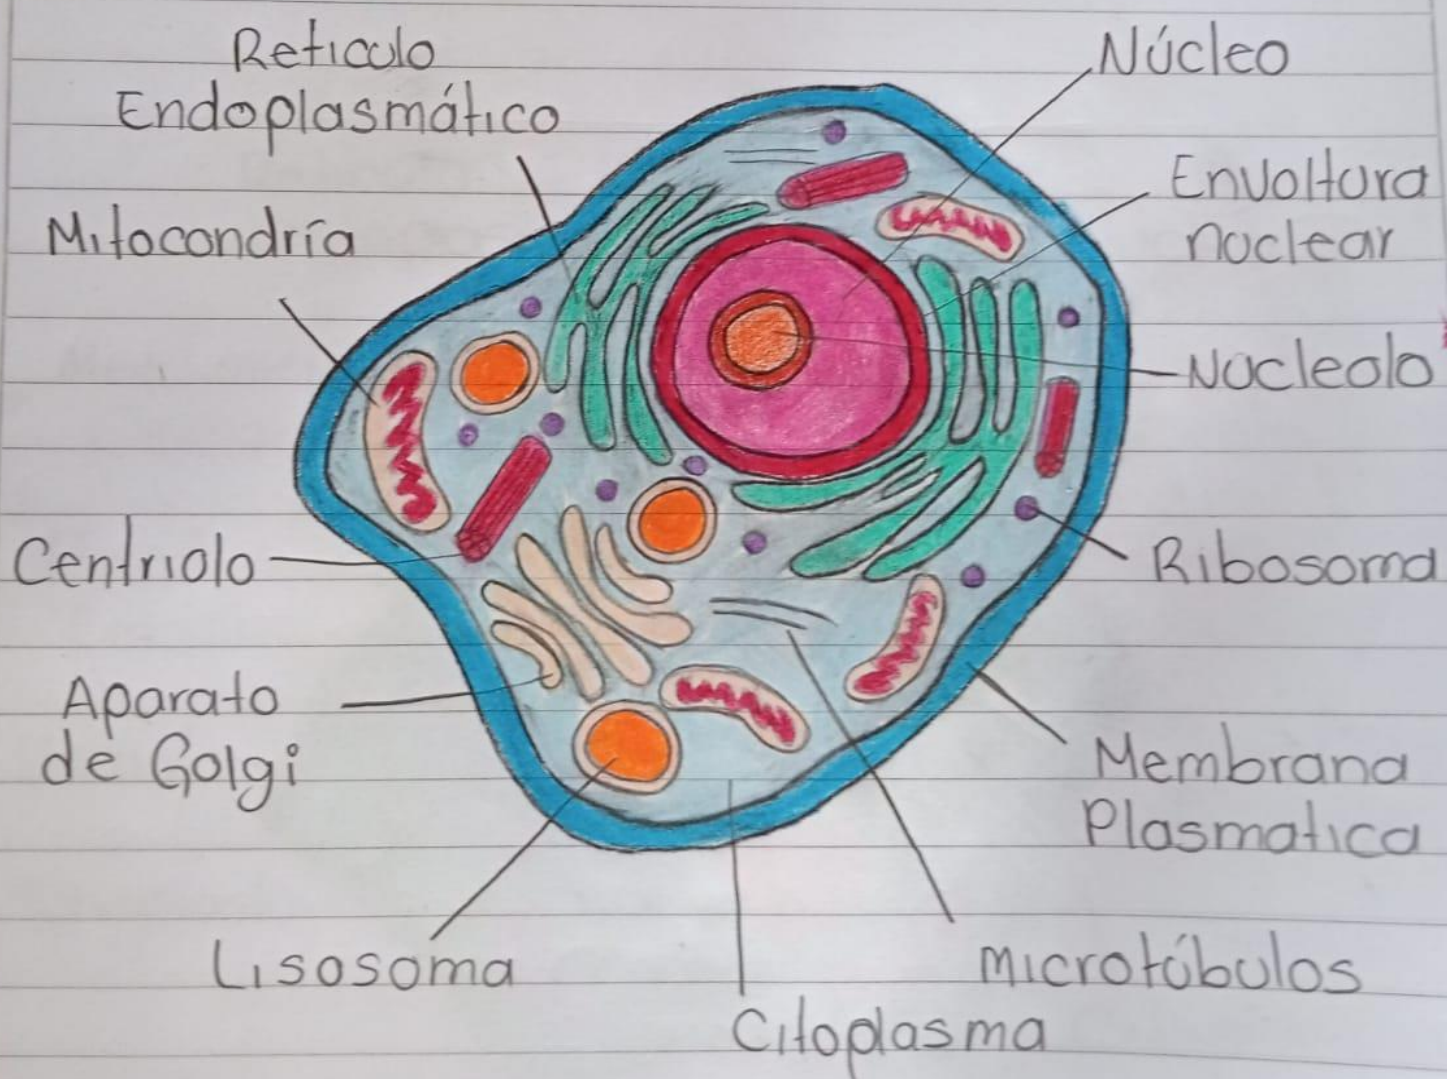 Reticulo
Endoplasmático
Mitocondría
Centriolo
Aparato
de Golgi
Lisosoma
Citoplasma
Microtúbulos
Membrana
Plasmatica
Ribosoma
Nucleolo
Envoltura
nuclear
Núcleo